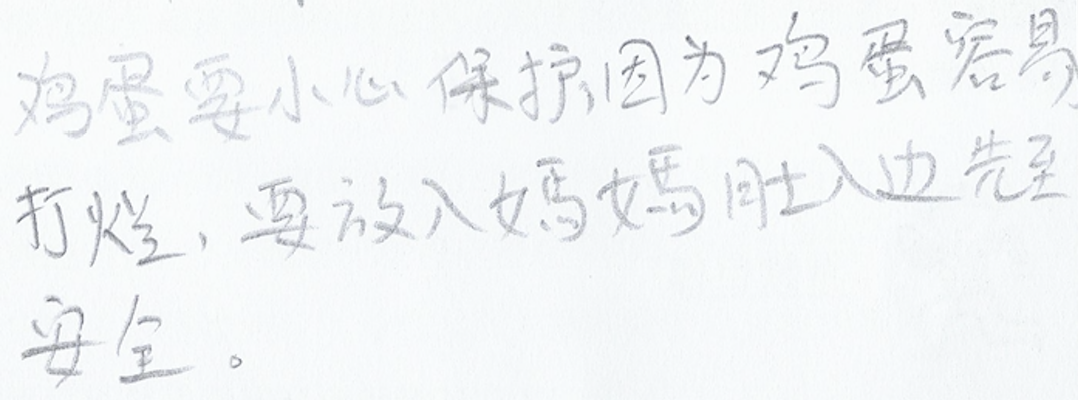 鸡蛋要小心保护,因为鸡蛋容易
打烂,要放入妈妈肚入边先至
安全。